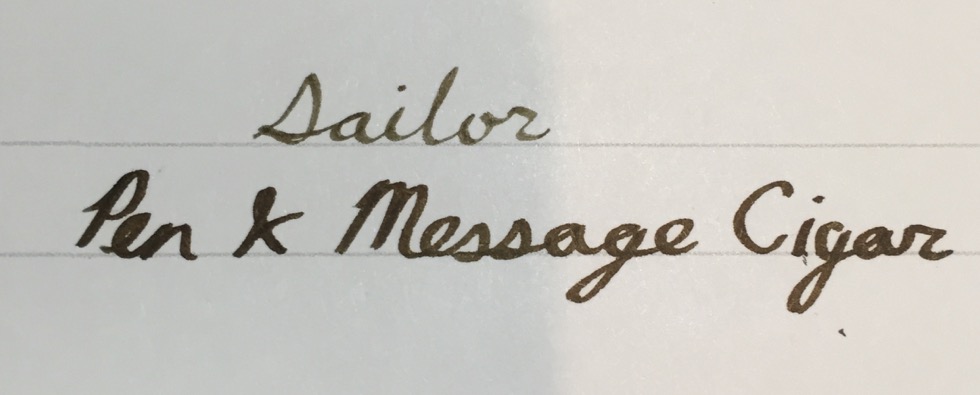 Sailor
Pen & Message Cigar